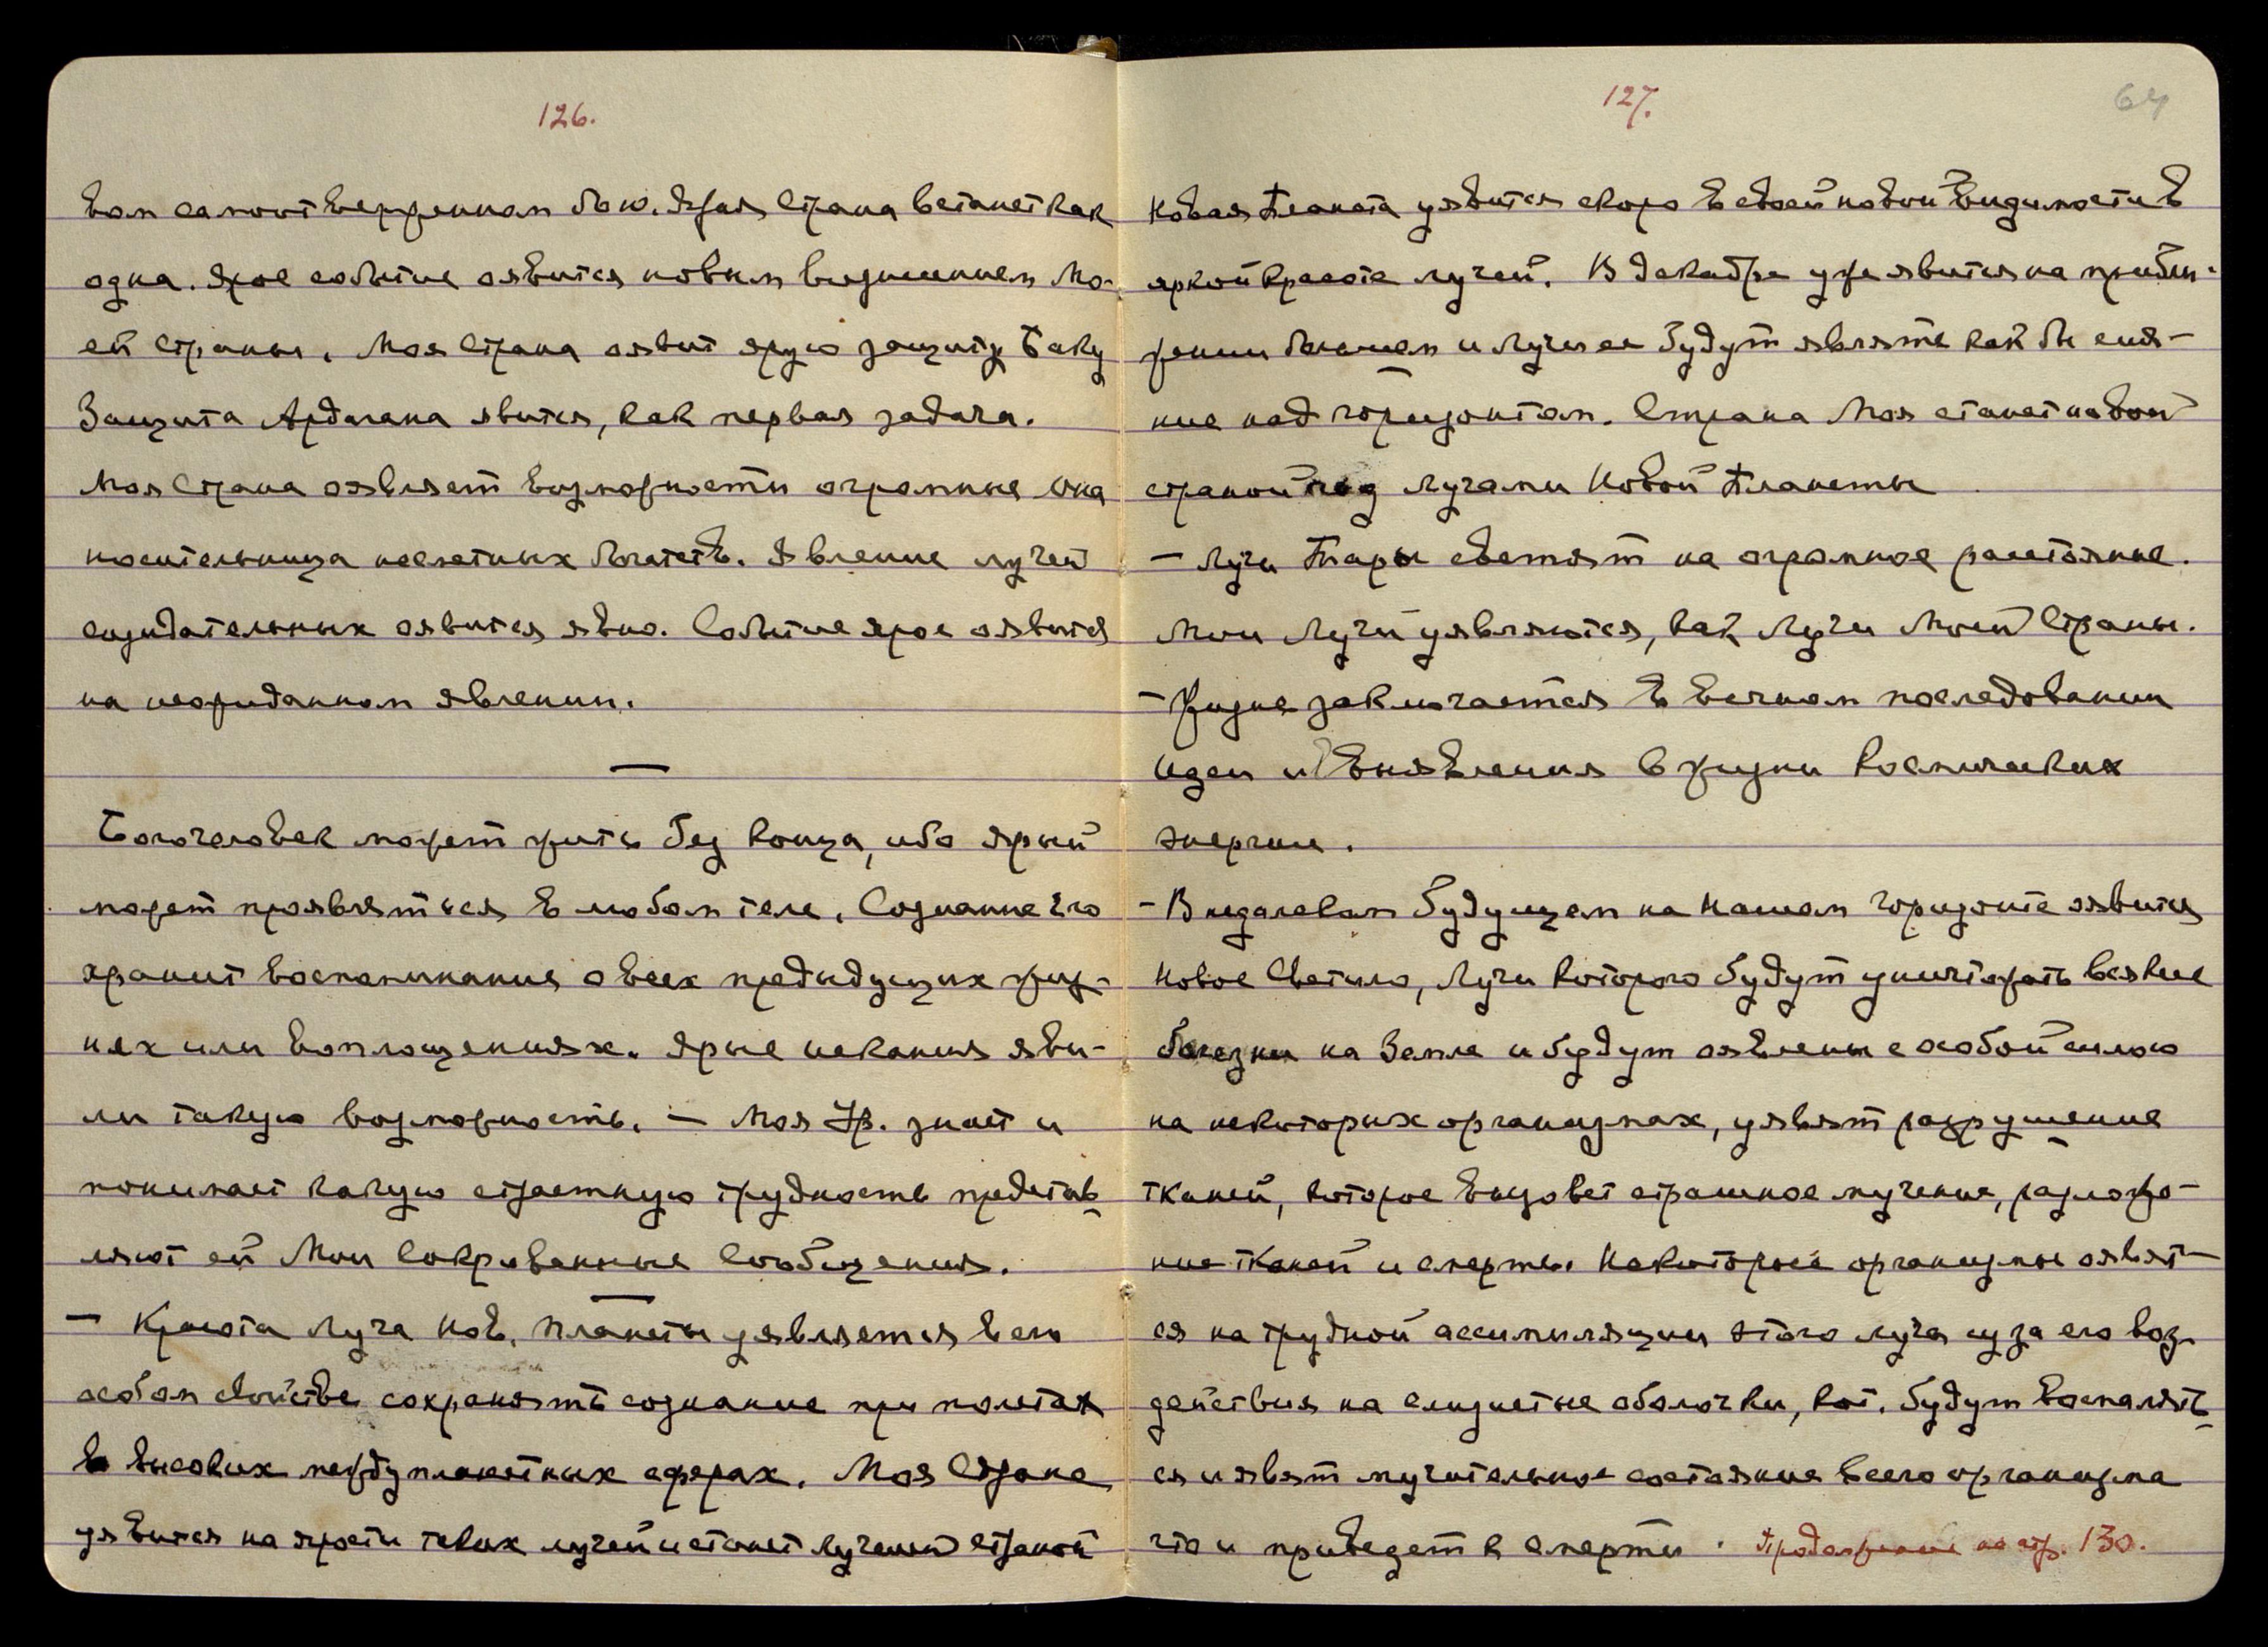 126.
вом самоотверженном бою. Ярая Страна встанет как
одна. Ярое событие оявится новым воздвижением Мо-
ей Страны. Моя Страна оявит ярую защиту Баку
Защита Ардагана явится, как первая задача.
Моя Страна оявляет возможности огромные Она
носительница несметных богатств. Явление лучей
созидательных оявится явно. Событие ярое оявится
на неожиданном явлении.
—
Богочеловек может жить без конца, ибо Ярый
может проявляться в любом теле. Сознание Его
хранит воспоминания о всех предыдущих жиз-
нях или воплощениях. Ярые искания яви-
ли такую возможность. — Моя Ур. знает и
понимает какую страстную трудность представ-
ляют ей Мои Сокровенные Сообщения.
—
— Красота Луча Нов. Планеты уявляется в его
особом свойстве сохранять сознание при полетах
в высоких междупланетных сферах. Моя Страна
уявится на ярости таких лучей и станет лучшей страной
127.
64
Новая Планета уявится скоро в своей новой видимости в
яркой красоте лучей. В декабре уже явится на прибли-
жении большем и лучи ее будут являть как бы сия-
ние над горизонтом. Страна Моя станет новой
страной под лучами Новой Планеты
— Лучи Тары светят на огромное расстояние.
Мои Лучи уявляются, как Лучи Моей Страны.
— Жизнь заключается в вечном последовании
Идеи и выявления в жизни космических
энергии.
— В недалеком будущем на Нашем горизонте оявится
Новое Светило, Лучи которого будут уничтожать всякие
болезни на Земле и будут оявлены с особой силою
на некоторых организмах, уявят разрушение
тканей, которое вызовет страшное мучение, разложе-
ние тканей и смерть. Некоторые организмы оявят-
ся на трудной ассимиляции этого луча из за его воз-
действия на слизистые оболочки, кот. будут воспалять-
ся и явят мучительное состояние всего организма
что и приведет к смерти. Продолжение на стр. 130.